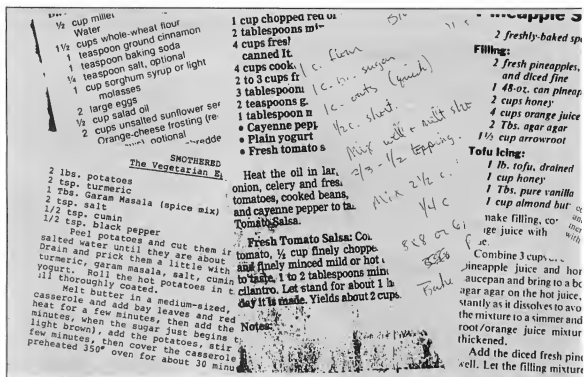 ½ cup millet
Water
1½ cups whole-wheat flour
1 teaspoon ground cinnamon
1 teaspoon baking soda
¼ teaspoon salt, optional
1 cup sorghum syrup or light
molasses
2 large eggs
½ cup salad oil
2 cups unsalted sunflower see
Orange-cheese frosting (re
optional
SMOTHERED
The Vegetarian E
2 lbs. potatoes
2 tsp. turmeric
1 Tbs. Garam Masala (spice mix)
2 tsp. salt
1/2 tsp. cumin
1/2 tsp. black pepper
Peel potatoes and cut them in
salted water until they are about
Drain and prick them a little with
turmeric, garam masala, salt, cumin
yogurt. Roll the hot potatoes in t
ill thoroughly coated.
Melt butter in a medium-sized,
casserole and add bay leaves and red
heat for a few minutes, then add the
minutes, when the sugar just begins t
light brown), add the potatoes, stir
few minutes, then cover the casserole
preheated 350° oven for about 30 minu
1 cup chopped red or
2 tablespoons mi
4 cups fresh
canned It
4 cups cook
2 to 3 cups fr
3 tablespoon
2 teaspoons g
1 tablespoon n
• Cayenne pepp
• Plain yogurt
• Fresh tomato s
Heat the oil in lar
onion, celery and fres
tomatoes, cooked beans,
and cayenne pepper to ta
Tomato Salsa.
Fresh Tomato Salsa: Co
tomato, ½ cup finely choppe
and finely minced mild or hot
to taste, 1 to 2 tablespoons min
cilantro. Let stand for about 1 h
day it is made. Yields about 2 cups.
Notes:
1 c. flour
1 c. br. sugar
1 c. oats (quick)
½ c. short.
Mix well + melt sho
2/3 - 1/2 topping.
Mix 2 ½ c.
¼ c
8x8 or
Bake
Pineapple S
2 freshly-baked spo
Filling:
2 fresh pineapples,
and diced fine
1 48-oz. can pineap
2 cups honey
4 cups orange juice
2 Tbs. agar agar
1½ cups arrowroot
Tofu Icing:
1 lb. tofu, drained
1 cup honey
1 Tbs. pure vanilla
1 cup almond but
make filling, co
ge juice with
Combine 3 cups
pineapple juice and hon
saucepan and bring to a bo
agar agar on the hot juice,
stantly as it dissolves to avo
the mixture to a simmer and
root/orange juice mixtur
thickened.
Add the diced fresh pine
well. Let the filling mixture